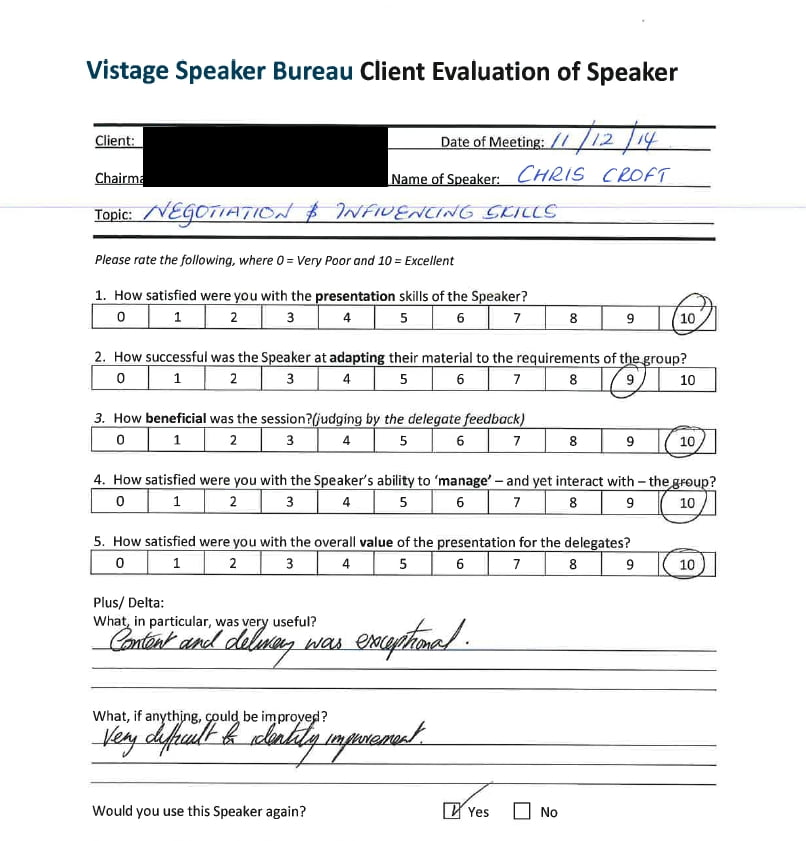 Vistage Speaker Bureau Client Evaluation of Speaker
Client: Date of Meeting: 11/12/14
Chairma Name of Speaker: CHRIS CROFT
Topic: NEGOTIATION & INFLUENCING SKILLS
Please rate the following, where 0 = Very Poor and 10 = Excellent
1. How satisfied were you with the presentation skills of the Speaker?
0 1 2 3 4 5 6 7 8 9 10
2. How successful was the Speaker at adapting their material to the requirements of the group?
0 1 2 3 4 5 6 7 8 9 10
3. How beneficial was the session?(judging by the delegate feedback)
0 1 2 3 4 5 6 7 8 9 10
4. How satisfied were you with the Speaker's ability to 'manage' – and yet interact with – the group?
0 1 2 3 4 5 6 7 8 9 10
5. How satisfied were you with the overall value of the presentation for the delegates?
0 1 2 3 4 5 6 7 8 9 10
Plus/ Delta:
What, in particular, was very useful?
Content and delivery was exceptional.
What, if anything, could be improved?
Very difficult to identify improvement.
Would you use this Speaker again? Yes No